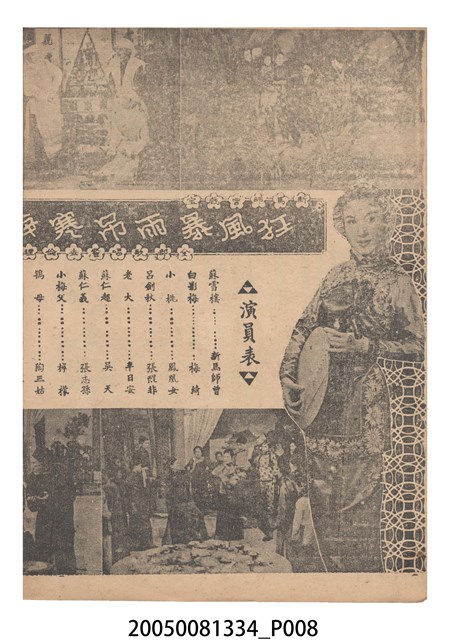 狂風暴雨吊寒
演員表
蘇雪樓……新馬師曾
白影梅……梅綺
小桃……鳳凰女
呂劍秋……張醒非
老大……半日安
蘇仁超……吳天
蘇仁義……張志孫
小梅父……檸檬
鴇母……陶三姑
20050081334_P008